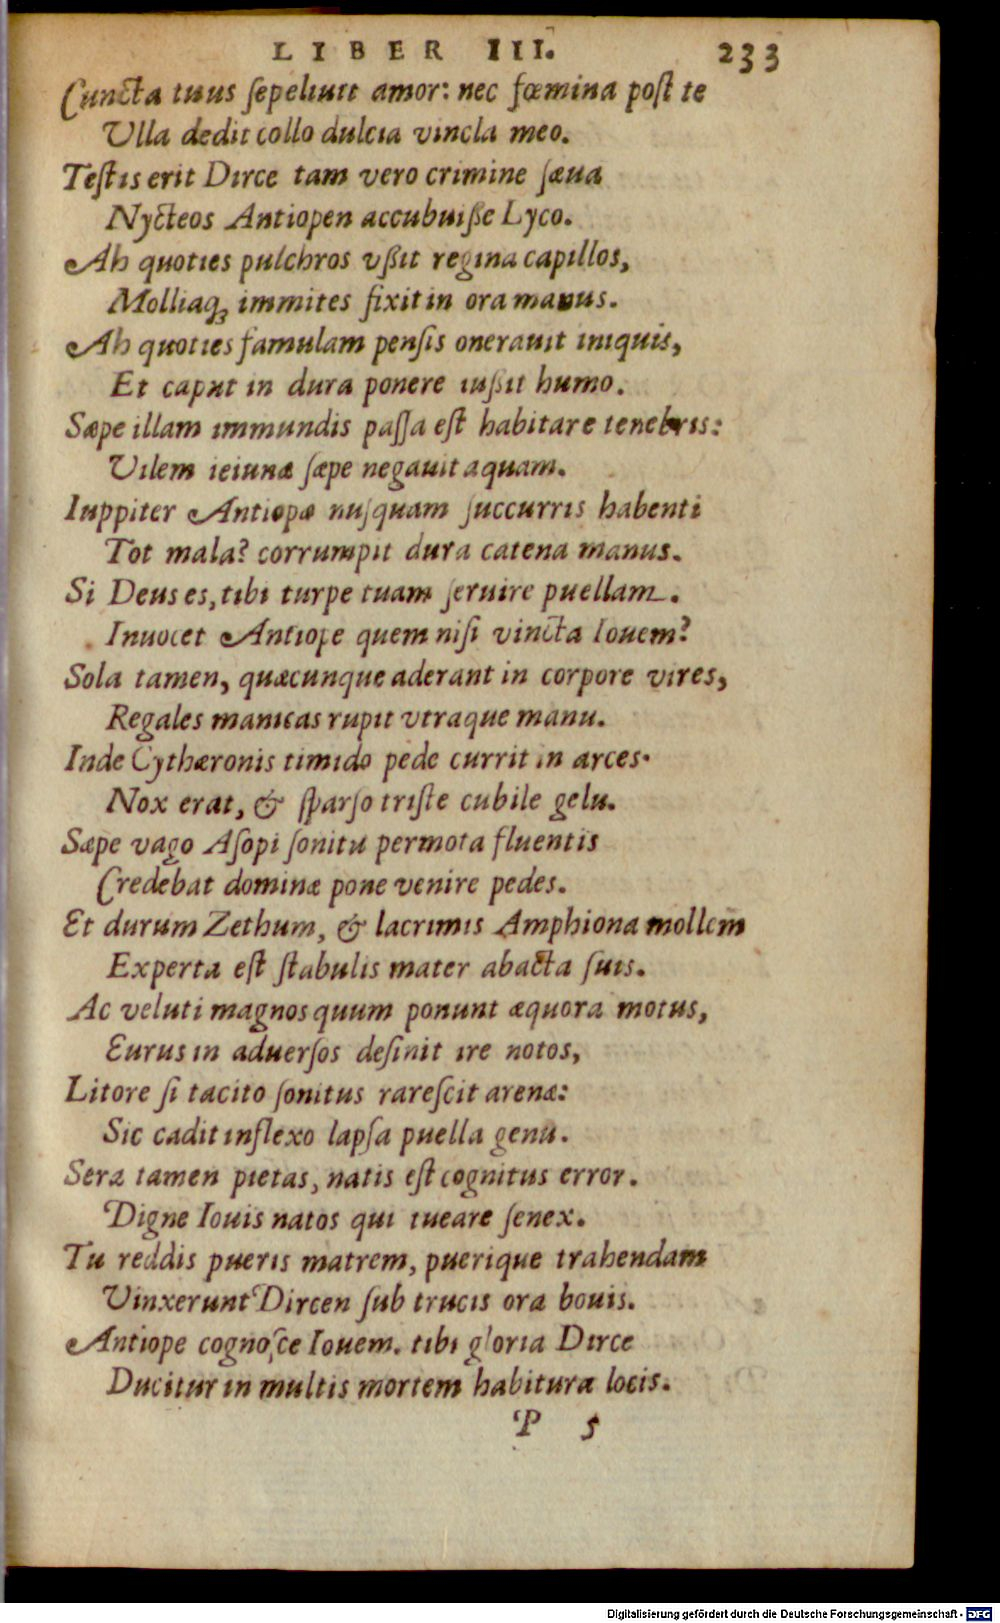 LIBER III. 233
Cuncta tuus sepeliuit amor: nec fœmina post te
Vlla dedit collo dulcia vincla meo.
Testis erit Dirce tam vero crimine sæua
Nycteos Antiopen accubuiße Lyco.
Ah quoties pulchros vßit regina capillos,
Molliaq; immites fixit in ora manus.
Ah quoties famulam pensis onerauit iniquis,
Et caput in dura ponere iußit humo.
Sæpe illam immundis passa est habitare tenebris:
Vilem ieiunæ sæpe negauit aquam.
Iuppiter Antiopæ nusquam succurris habenti
Tot mala? corrumpit dura catena manus.
Si Deus es, tibi turpe tuam seruire puellam.
Inuocet Antiope quem nisi vincta Iouem?
Sola tamen, quæcunque aderant in corpore vires,
Regales manicas rupit vtraque manu.
Inde Cythæronis timido pede currit in arces.
Nox erat, & sparso triste cubile gelu.
Sæpe vago Asopi sonitu permota fluentis
Credebat dominæ pone venire pedes.
Et durum Zethum, & lacrimis Amphiona mollem
Experta est stabulis mater abacta suis.
Ac veluti magnos quum ponunt æquora motus,
Eurus in aduersos desinit ire notos,
Litore si tacito sonitus rarescit arenæ:
Sic cadit inflexo lapsa puella genu.
Sera tamen pietas, natis est cognitus error.
Digne Iouis natos qui tueare senex.
Tu reddis pueris matrem, puerique trahendam
Vinxerunt Dircen sub trucis ora bouis.
Antiope cognosce Iouem. tibi gloria Dirce
Ducitur in multis mortem habitura locis.
P 5
Digitalisierung gefördert durch die Deutsche Forschungsgemeinschaft - DFG